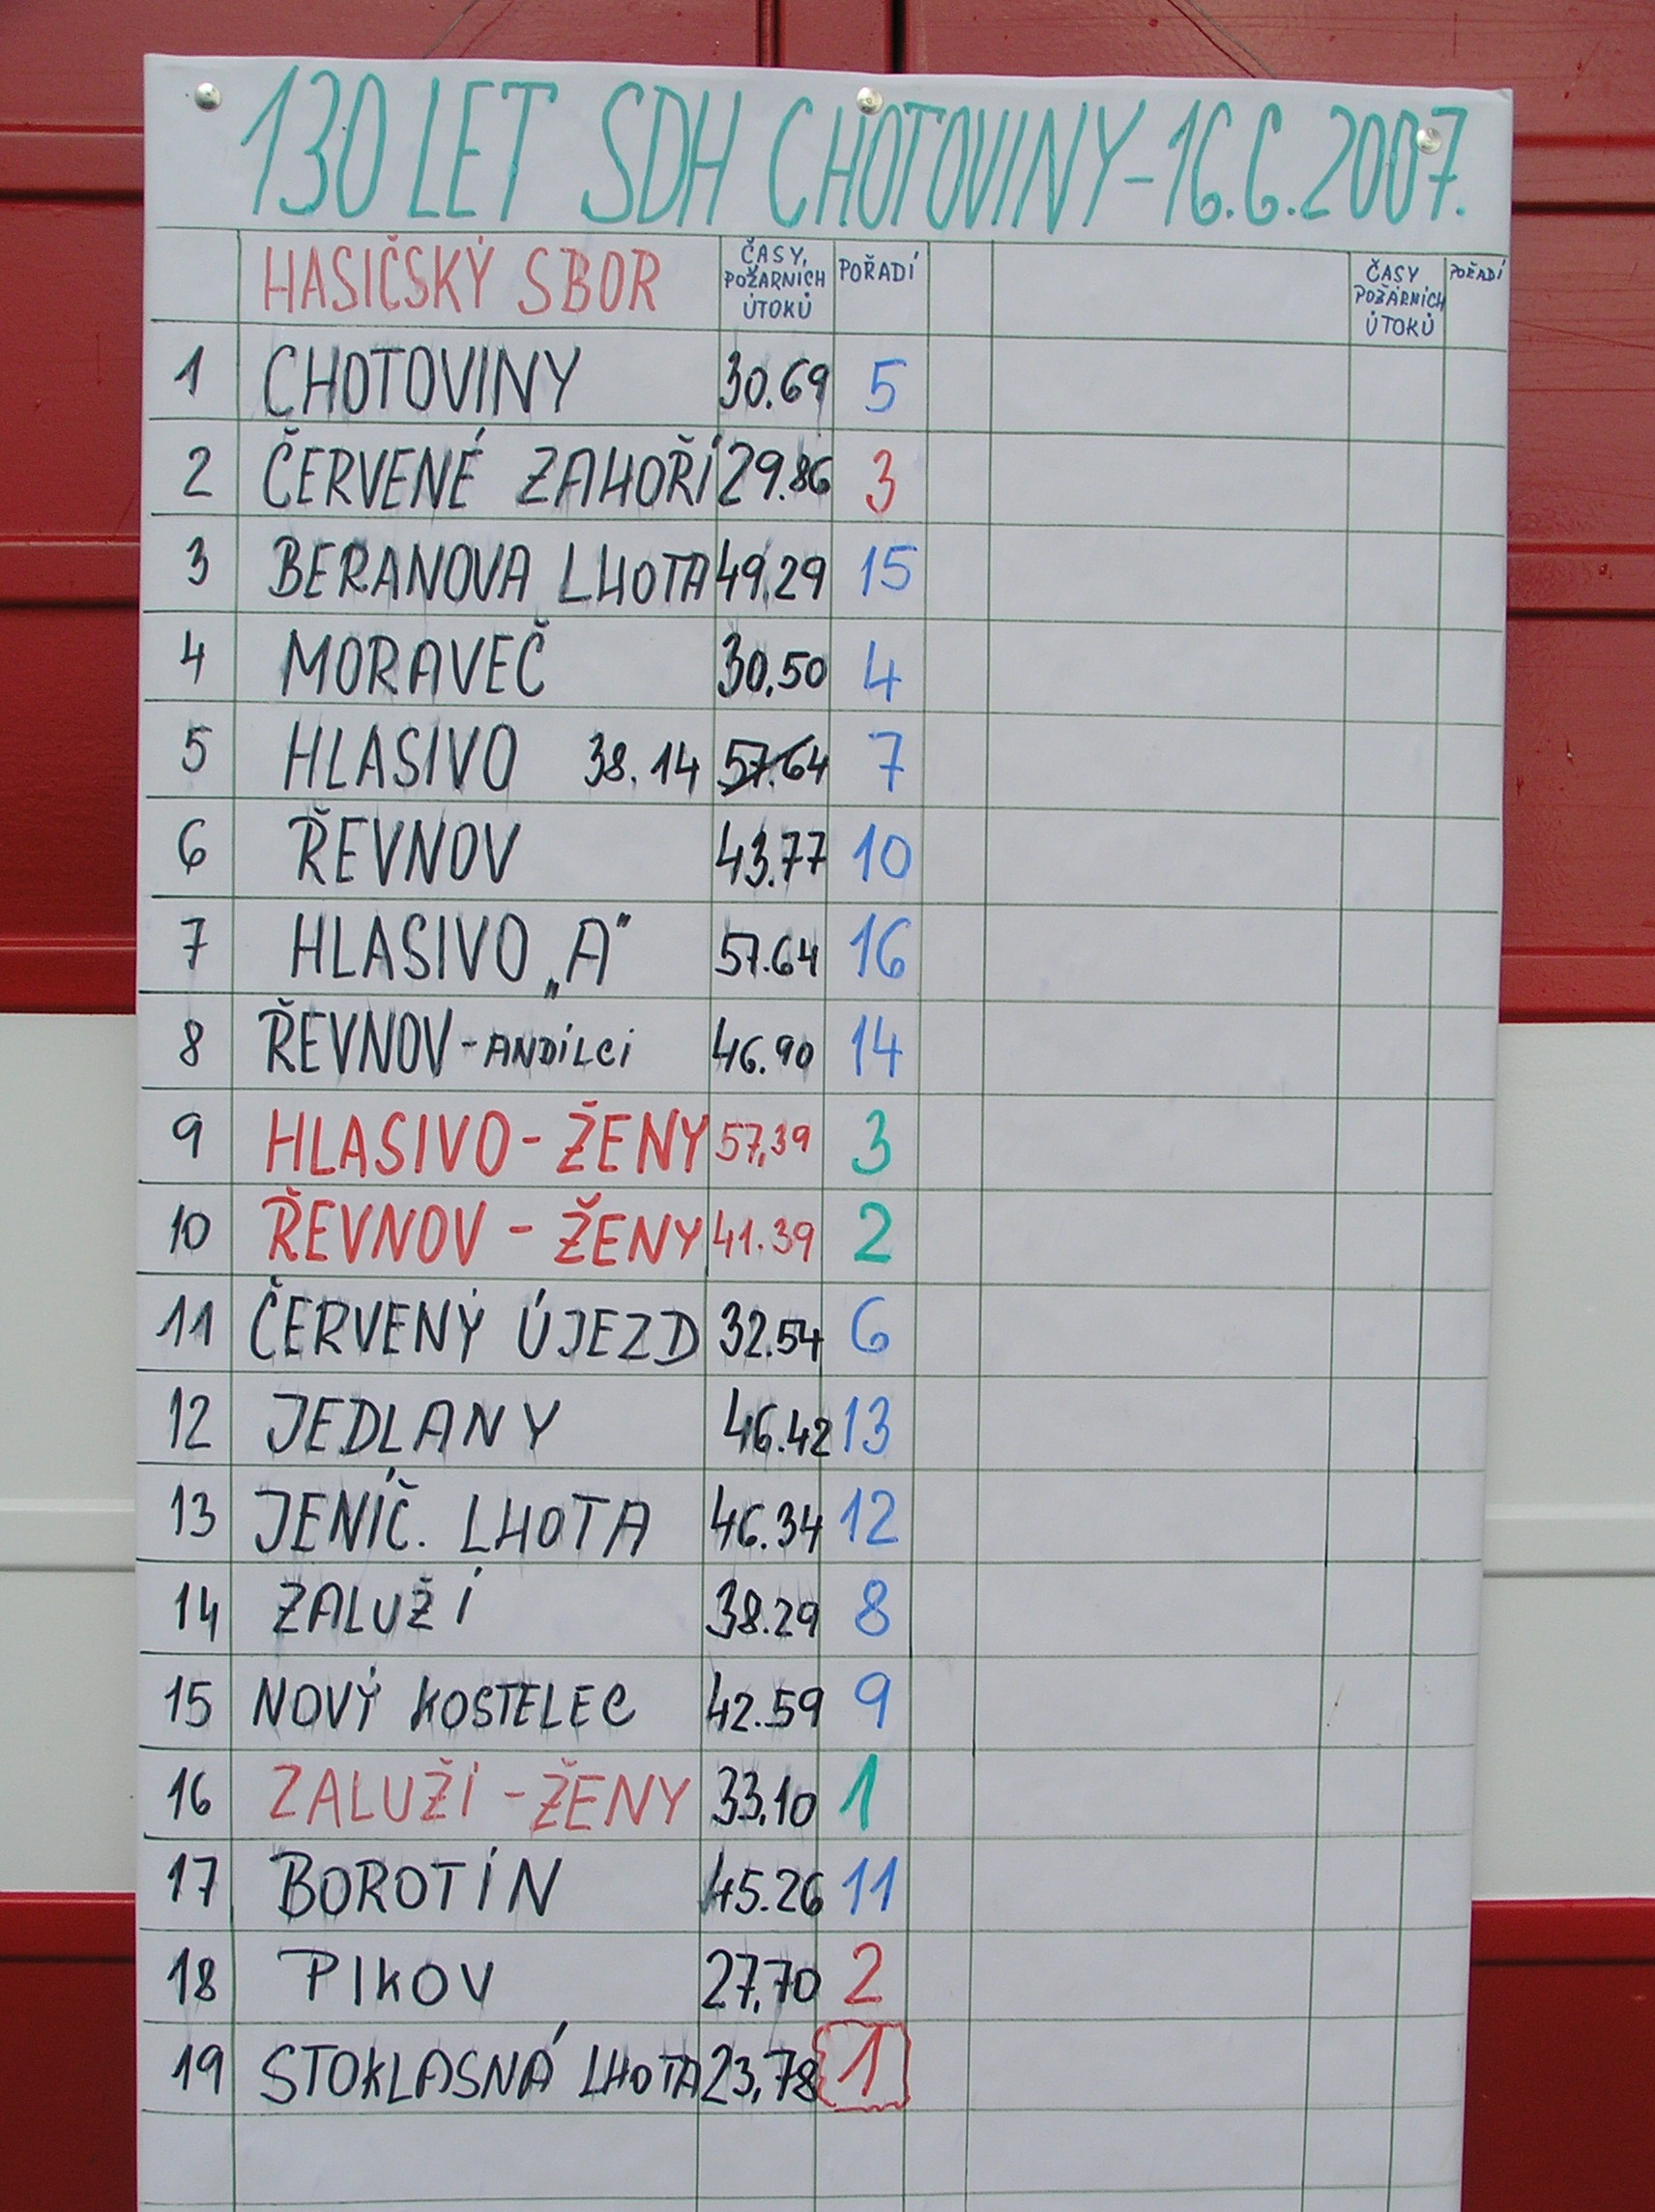 130 LET SDH CHOTOVINY-16.6.2007.
HASIČSKÝ SBOR ČASY POŽÁRNÍCH ÚTOKŮ POŘADÍ ČASY POŽÁRNÍCH ÚTOKŮ POŘADÍ
1 CHOTOVINY 30.69 5
2 ČERVENÉ ZAHOŘÍ 29.86 3
3 BERANOVA LHOTA 49.29 15
4 MORAVEČ 30.50 4
5 HLASIVO 38.14 57.64 7
6 ŘEVNOV 43.77 10
7 HLASIVO „A" 57.64 16
8 ŘEVNOV-ANDÍLCI 46.90 14
9 HLASIVO-ŽENY 57,39 3
10 ŘEVNOV - ŽENY 41.39 2
11 ČERVENÝ ÚJEZD 32.54 6
12 JEDLANY 46.42 13
13 JENÍČ. LHOTA 46.34 12
14 ZALUŽÍ 38.29 8
15 NOVÝ KOSTELEC 42.59 9
16 ZALUŽÍ -ŽENY 33,10 1
17 BOROTÍN 45.26 11
18 PIKOV 27,70 2
19 STOKLASNÁ LHOTA 23,78 1